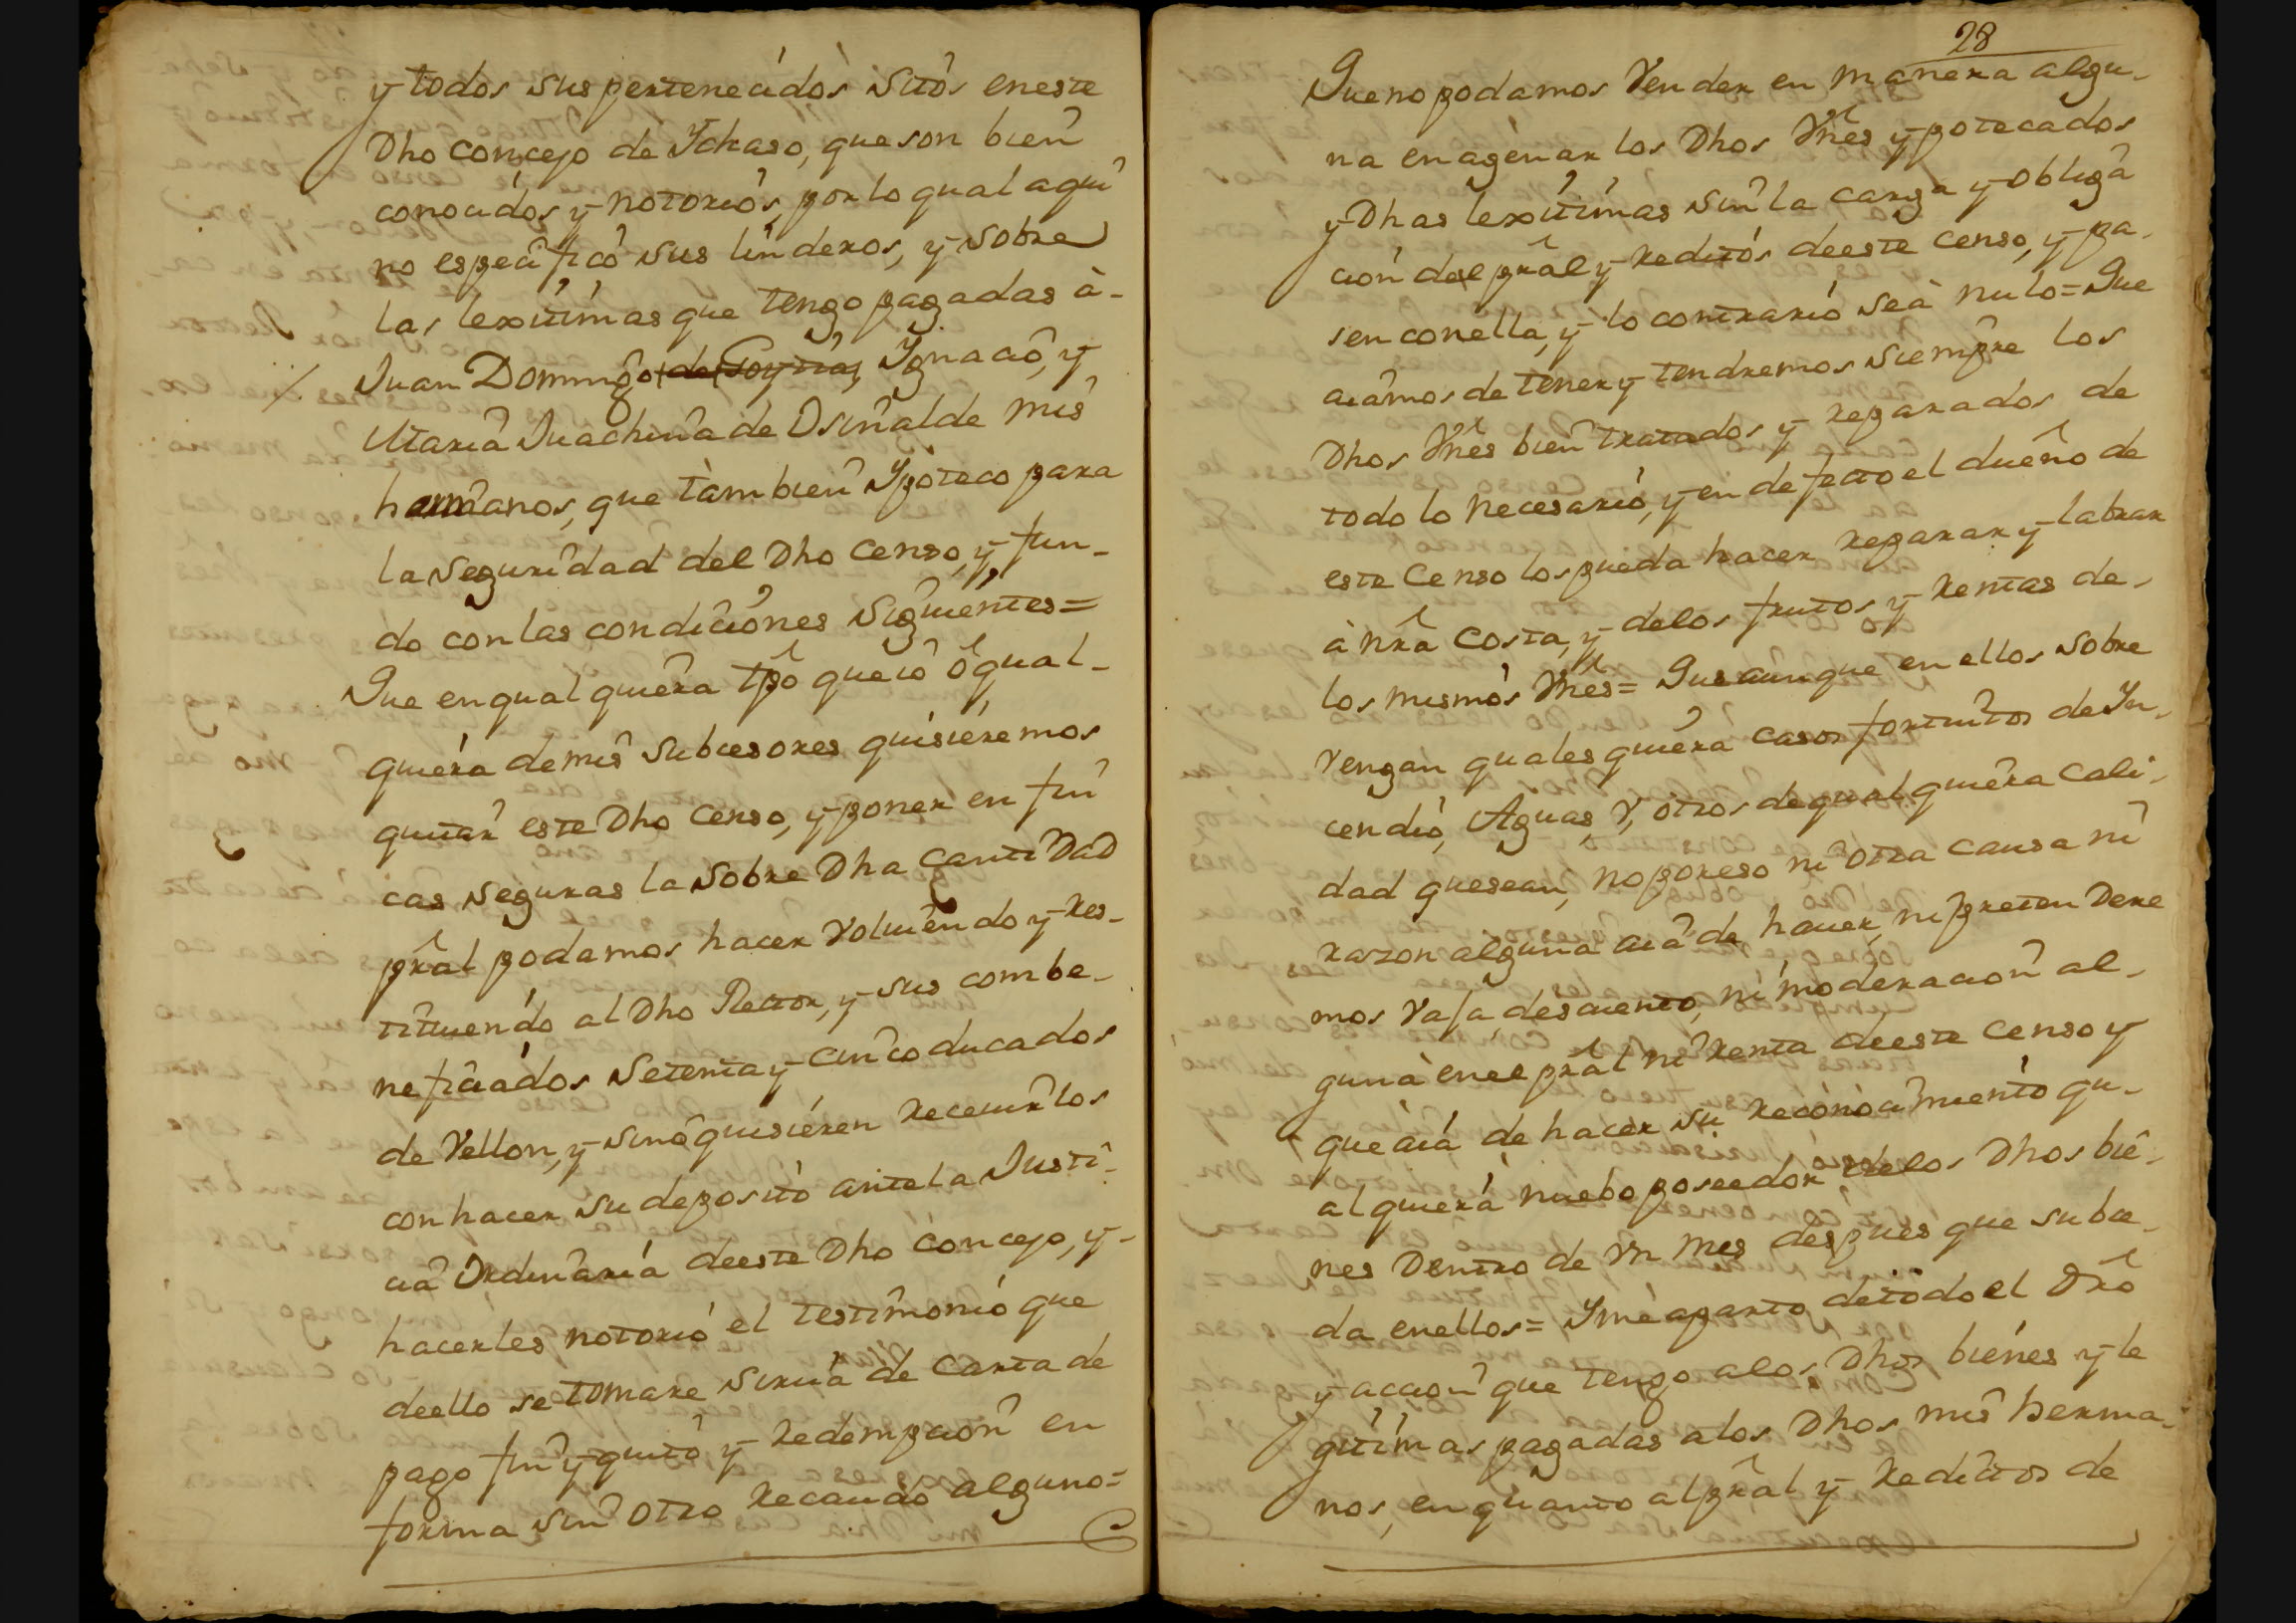 y todos sus pertenecidos sitos eneste
Dho Concejo de Ychaso, que son bien
conocidos y notorios, por lo qual aqui
no especifico sus linderos, y sobre
las lexitimas que tengo pagadas à
Juan Domingo de Goytia, Ygnacio, y
Maria Juachina de Osinalde mis
hermanos, que tàmbien Ypoteco para
la seguridad del Dho Censo, y fun-
do con las condiciones siguientes=
Que en qual quiera tpô que io ô qual-
quiera de mis subcesores quisieremos
quitar este Dho Censo, y poner en fin
cas seguras la sobre Dha Cantidad
prâl podamos hacer volviendo y res-
tituiendo al Dho Rector, y sus combe-
neficiados setenta y cinco ducados
de Vellon, y sino quisieren recevirlos
con hacer su deposito ante la Justi-
cia Ordinaria deeste Dho concejo, y-
hacerles notorio el testimonio que
deello se tomare sirva de Carta de
pago fin y quito, y redempcion en
forma sin otro recaudo alguno=
28
Que no podamos Vender en manera algu-
na enagenar los Dhos Vnês ypotecados
y Dhas lexitimas sin la carga y obliga
cion del prâl y reditos deeste Censo, y pa-
sen con ella, y lo contrario seà nulo= Que
aiamos de tener y tendremos siempre los
Dhos Vnês bien tratados y reparados de
todo lo necesario, y en defecto el dueño de
este Censo los pueda hacer reparar y labrar
à nrâ Costa, y delos frutos y rentas de-
los mismos Vnês= Que aunque en ellos sobre
vengan quales quiera casos fortuitos de Yn-
cendio, Aguas, V, otros de qual quiera cali-
dad quesean, no por eso ni otra causa ni
razon alguna aia de haver, ni preten Dere
mos Vaja, descuento, ni moderacion al-
guna en el prâl ni renta deeste Censo y
que aia de hacer su reconocimiento qu-
al quiera nuebo poseedor delos Dhos bie-
nes Dentro de Vn mes despues que subce-
da enellos= Y me aparto de todo el Drô
y accion que tengo alos Dhos bienes y le
gitimas pagadas a los Dhos mis herma-
nos, en quanto al prâl y reditos de